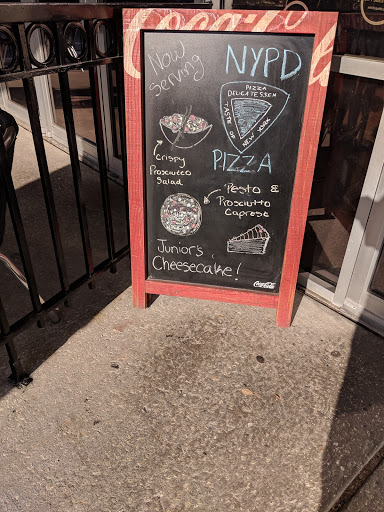 Coca-Cola
Now
Serving
NYPD
PIZZA
DELICATESSEN
TASTE OF
NEW YORK
PIZZA
Crispy
Prosciutto
Salad
Pesto &
Prosciutto
Caprese
Junior's
Cheesecake!
Coca-Cola